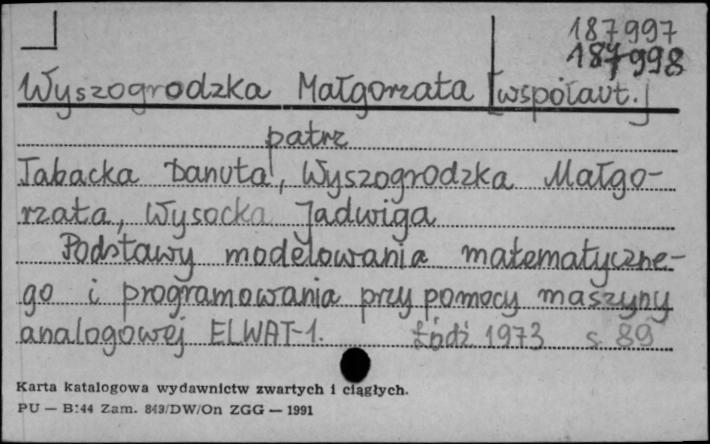 187997
187998
Wyszogrodzka Małgorzata [współaut.]
patrz
Tabacka Danuta, Wyszogrodzka Małgo-
rzata, Wysocka Jadwiga
Podstawy modelowania matematyczne-
go i programowania przy pomocy maszyny
analogowej ELWAT-1. Łódź 1973 s. 89
Karta katalogowa wydawnictw zwartych i ciągłych.
PU — B:44 Zam. 849/DW/On ZGG — 1991